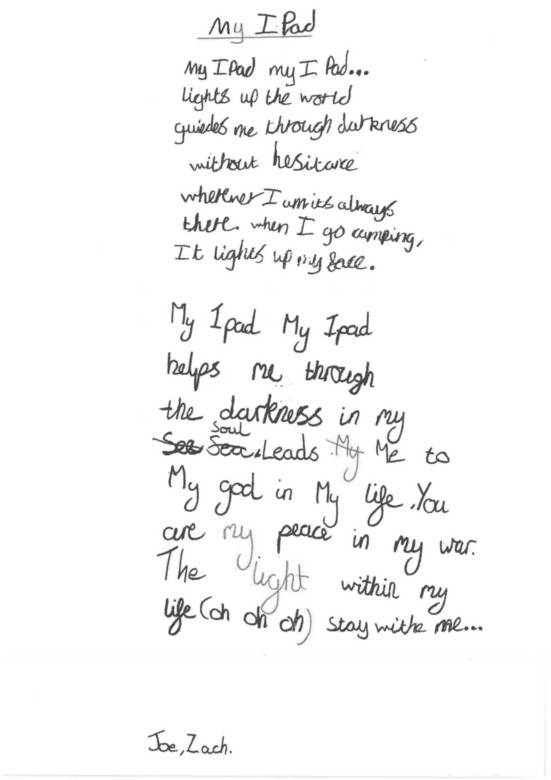 My I Pad
My I Pad my I Pad...
lights up the world
guides me through darkness
without hesitance
wherever I am its always
there. when I go camping,
It lights up my face.
My Ipad My Ipad
helps me through
the darkness in my
soul
Leads My Me to
My god in My life. You
are my peace in my war.
The light within my
life (oh oh oh) stay withe me...
Joe, Zach.